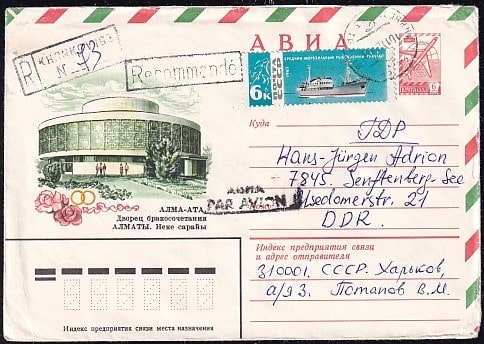 АВИА
R
№ 93
Recommandé
6к
ПОЧТА СССР
1966
СРЕДНИЙ МОРОЗИЛЬНЫЙ РЫБОЛОВНЫЙ ТРАУЛЕР
Куда
ГДР
Hans-Jürgen Adrion
7845 Senftenberg-See
Elsedomerstr. 21
DDR.
АВИА
PAR AVION
АЛМА-АТА.
Дворец бракосочетания
АЛМАТЫ. Неке сарайы
Индекс предприятия связи
и адрес отправителя
310001. СССР. Харьков,
а/я 93. Потапов В.М.
Индекс предприятия связи места назначения